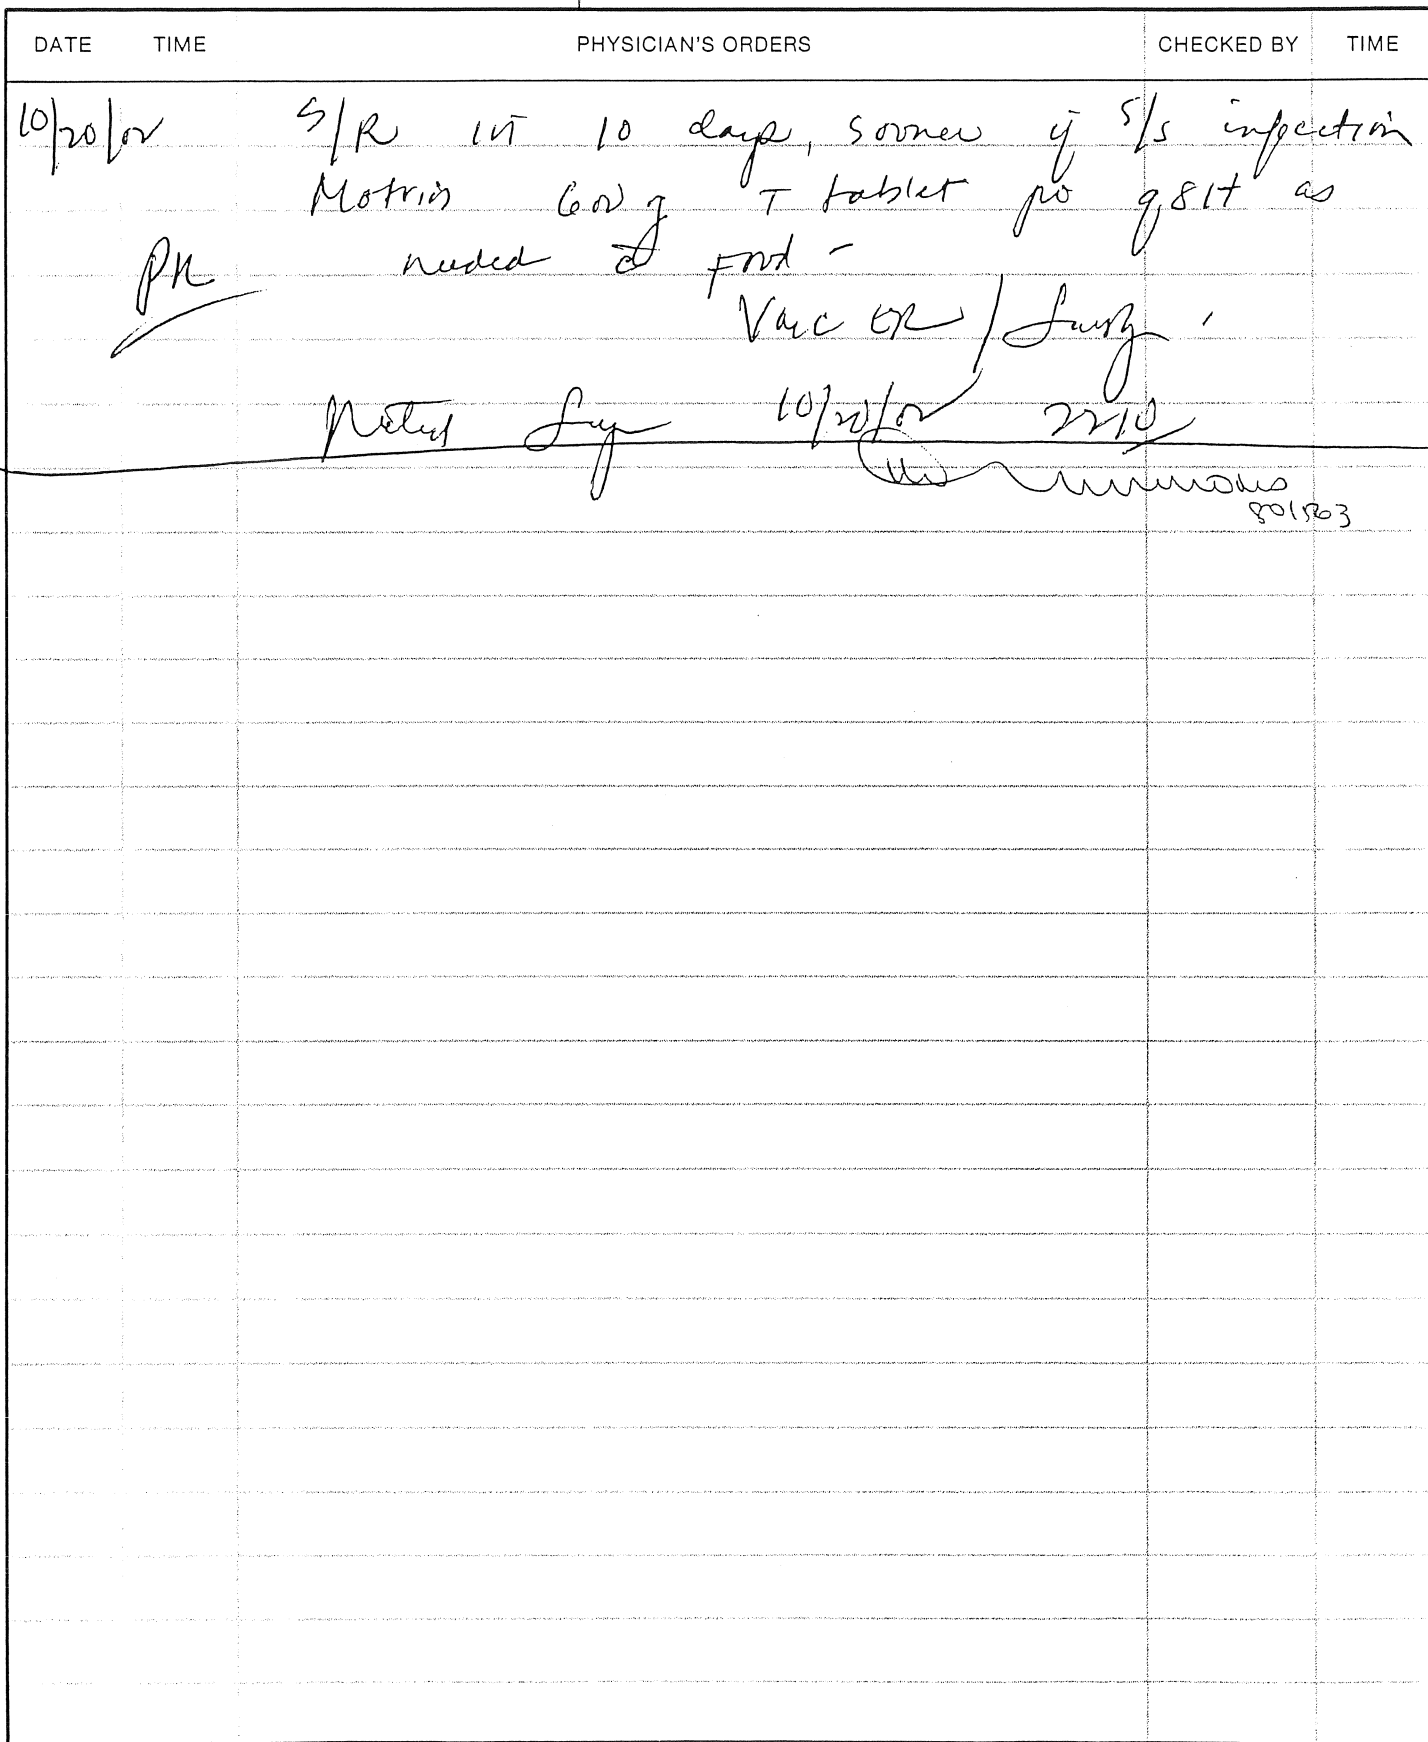 DATE TIME PHYSICIAN'S ORDERS CHECKED BY TIME
10/20/02 S/R in 10 days, sooner if s/s infection
Motrin 600 T tablet po q8H as
needed c̄ Food -
/
Noted 10/20/02 2210